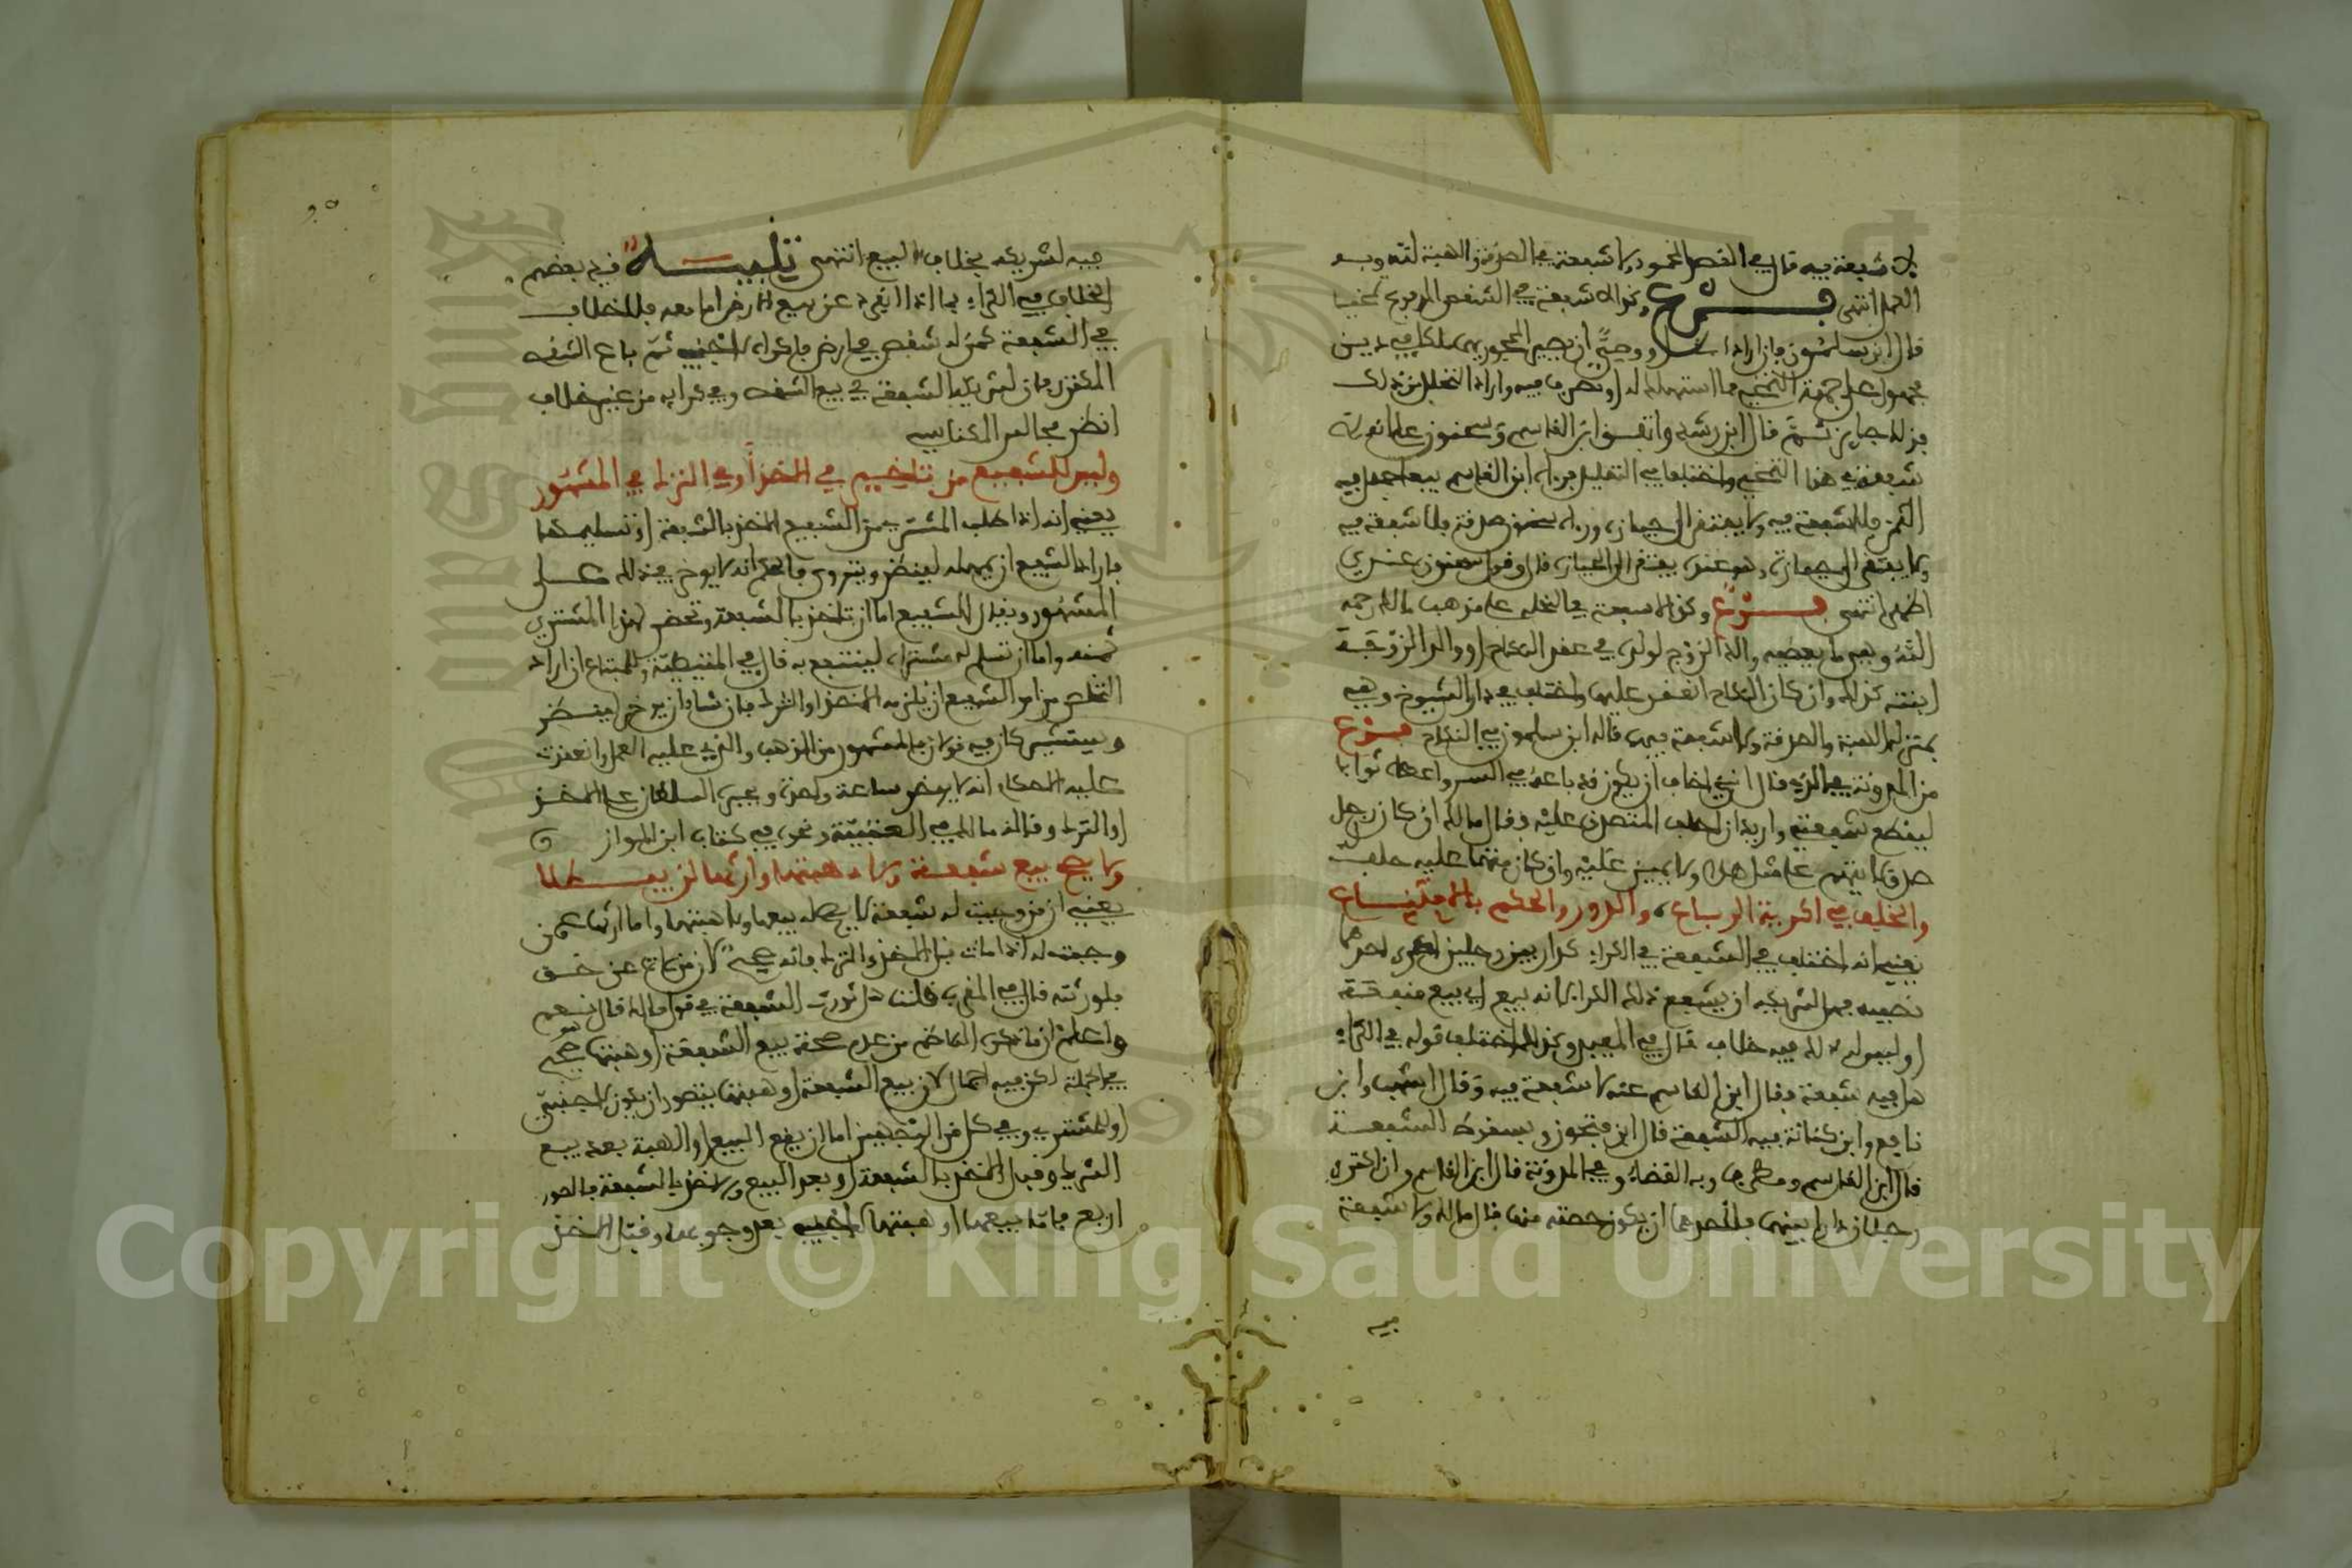 لا شفعة فيه قال في المقصد المحمود ولا شفعة في الصدقة والهبة لغير ثواب وبه
العمل انتهى فرع وكذا لا شفعة في الشقص المدفوع
قال ابن سلمون فإن أراد أو وصي أن يصير لمحجوره ملكا في دين
مجهول على جهة التخمين مما استهلكه له أو تصرف فيه وأراد التحلل من ذلك
فذلك جايز ثم قال ابن رشد واتفق ابن القاسم وسحنون على أنه لا
شفعة في هذا التخمين واختلفا في التعليل فرآه ابن القاسم بيعا جهل فيه
الثمن فلا شفعة فيه ولا يفتقر إلى حيازة ورءاه سحنون صدقة فلا شفعة فيه
ولا يفتقر إلى حيازة وهو عنده يفتقر إلى الحيازة قال وقول سحنون عندي
أظهر انتهى فرع وكذا لا شفعة في الخلع على مذهب مالك رحمه
الله وفيما يعطيه والد الزوج لولده في عقد النكاح أو والد الزوجة
ابنته كذلك وإن كان النكاح انعقد عليه واختلف في ذلك الشيوخ وهي
بمنزلة الهبة والصدقة ولا شفعة فيها قاله ابن سلمون في النكاح فرع
من المدونة قال إني أخاف أن يكون قد باعه في السر وأعطاه ثوابا
ليقطع شفعته وأريد أن أحلف المتصدق عليه فقال مالك إن كان رجل
صدق لا يتهم على مثل هذا ولا يمين عليه وإن كان متهما عليه حلف
والخلف في أكرية الرباع والدور والحكم بالامتناع
يعني أنه اختلف في الشفعة في الكراء كدار بين رجلين أكرى أحدهما
نصيبه فهل لشريكه أن يشفع ذلك الكراء لأنه بيع أي بيع منفعة
أو ليس له ذلك فيه خلاف قال في المفيد وكذلك اختلف قوله في الكراء
هل فيه شفعة فقال ابن القاسم عنه لا شفعة فيه وقال أشهب وابن
نافع وابن كنانة فيه الشفعة قال ابن فتحون وبسقوط الشفعة
قال ابن القاسم ومطرف وبه القضاء وفي المدونة قال ابن القاسم وإن اكترى
رجلان دارا بينهما فلأحدهما أن يكري حصته منها قال مالك ولا شفعة
فيه
فيه لشريكه بخلاف البيع انتهى تنبيه قيد بعضهم
الخلاف في الكراء بما إذا انفرد عن بيع الأرض أما معه فلا خلاف
في الشفعة كمن له شقص في أرض فأكراه لأجنبي ثم باع الشقص
المذكور فإن لشريكه الشفعة في بيع الشقص وفي كرائه من غير خلاف
انظر مجالس المكناسي
وليس للشفيع من تأخير في الأخذ أو في الترك في المشهور
يعني أنه إذا طلب المشتري من الشفيع الأخذ بالشفعة أو تسليمها
فأراد الشفيع أن يمهله لينظر ويتروى فالحكم أنه لا يؤخر في ذلك على
المشهور ويقال للشفيع إما أن تأخذ بالشفعة وتحضر لهذا المشتري
ثمنه وإما أن تسلم له مشتراه لينتفع به قال في المتيطية وللمبتاع إن أراد
التخلص من أمر الشفيع أن يلزمه الأخذ أو الترك فإن شاء أن يؤخر لينظر
ويستشير كان فيه قولان المشهور من المذهب والذي عليه العمل وانعقدت
عليه الأحكام أنه لا يؤخر ساعة واحدة ويجبره السلطان على الأخذ
أو الترك وقاله مالك في العتبية ونحوه في كتاب ابن المواز
ولا يصح بيع شفعة ولا هبتها وإرثها لن يبطلا
يعني أن من وجبت له شفعة لا يصح له بيعها ولا هبتها وأما إرثها عمن
وجبت له إذا مات قبل الأخذ والترك فإنه صحيح لأن من مات عن حق
فلورثته قال في المغرب قلت هل تورث الشفعة في قول مالك قال نعم
واعلم أن ما ذكره الناظم من عدم صحة بيع الشفعة أو هبتها صحيح
في الجملة لكن فيه إجمال لأن بيع الشفعة أو هبتها يتصور أن يكون لأجنبي
أو للمشتري وفي كل من الوجهين إما أن يقع البيع أو الهبة بعد بيع
الشريك وقبل الأخذ بالشفعة أو بعد البيع والأخذ بالشفعة فالصور
أربع فأما بيعها أو هبتها لأجنبي بعد وجوبها وقبل الأخذ
Copyright © King Saud University